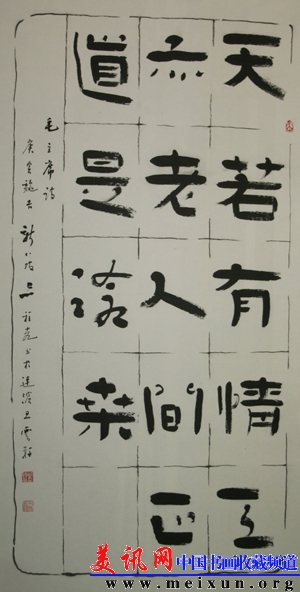 天若有情天
亦老人間正
道是滄桑
毛主席詩
美讯网 中国书画收藏频道
www.meixun.org